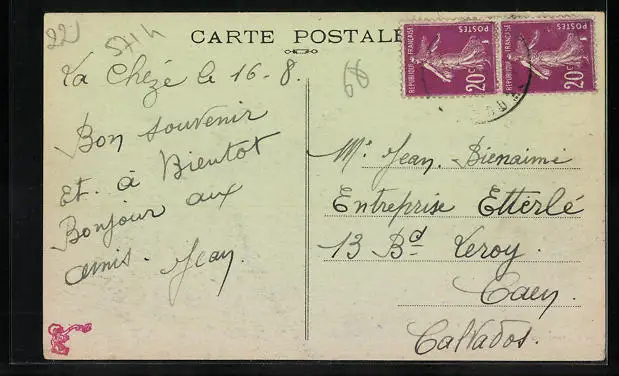 221
5714
CARTE POSTALE
68
REPUBLIQUE FRANÇAISE
POSTES
20c
REPUBLIQUE FRANÇAISE
POSTES
20c
La Chèze le 16-8.
Bon souvenir
Et à Bientot
Bonjour aux
amis. Jean.
Mr Jean. Bienaimé
Entreprise Etterlé
13 Bd Leroy.
Caen.
Calvados.